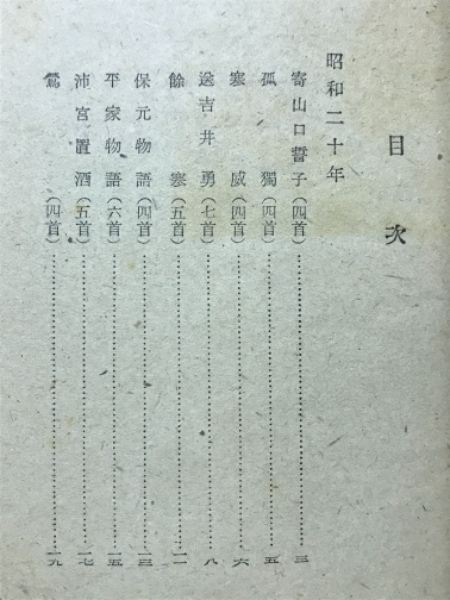 目次
昭和二十年
寄山口誓子(四首)……三
孤獨(四首)……五
寒威(四首)……六
送吉井勇(七首)……八
餘寒(五首)……一一
保元物語(四首)……一三
平家物語(六首)……一五
沛宮置酒(五首)……一七
鶯(四首)……一九